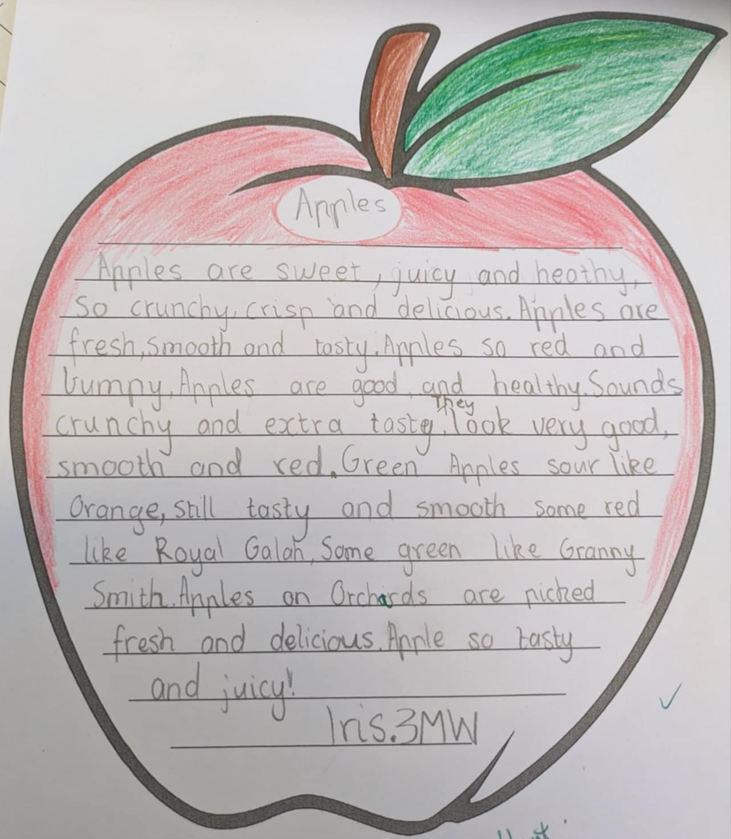 Apples
Apples are sweet, juicy and heathy,
so crunchy, crisp and delicious. Apples are
fresh, smooth and tasty. Apples so red and
bumpy, Apples are good and healthy. Sounds
They
crunchy and extra tasty, look very good,
smooth and red. Green Apples sour like
Orange, still tasty and smooth some red
like Royal Galah, Some green like Granny
Smith. Apples on Orchards are picked
fresh and delicious. Apple so tasty
and juicy!
Iris.3MW